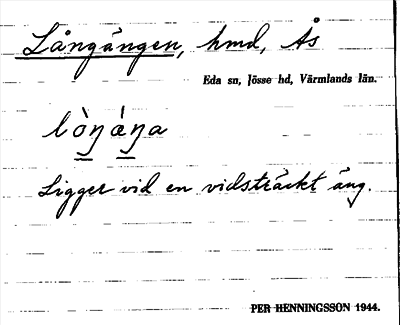 Långängen, hmd, Ås
Eda sn, Jösse hd, Värmlands län.
lò̱ŋá̱ŋa
Ligger vid en vidsträckt äng.
PER HENNINGSSON 1944.